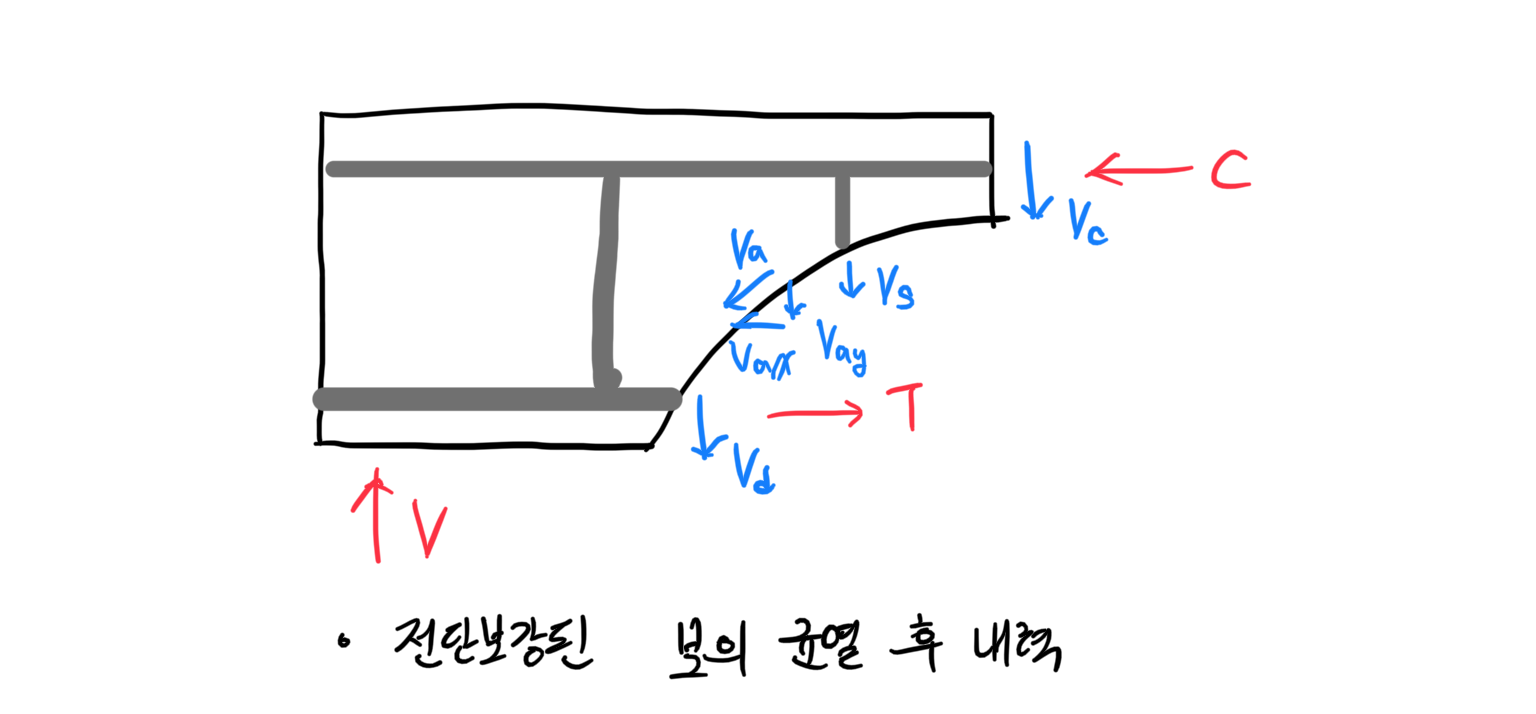 C
Vc
Va
Vs
Vay
Vax
T
Vd
V
• 전단보강된 보의 균열 후 내력